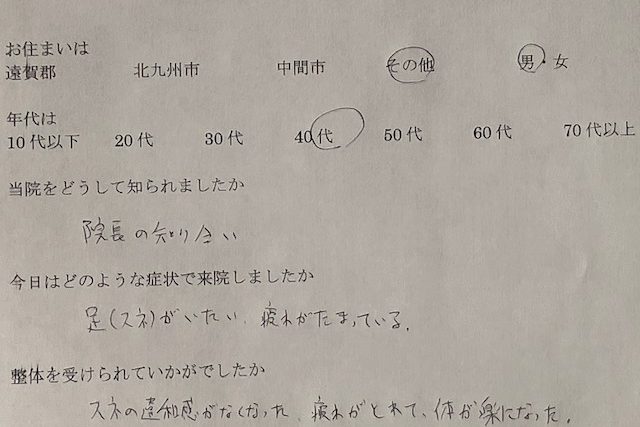 お住まいは
遠賀郡 北九州市 中間市 その他 男・女
年代は
10代以下 20代 30代 40代 50代 60代 70代以上
当院をどうして知られましたか
院長の知り合い
今日はどのような症状で来院しましたか
足(スネ)がいたい、疲れがたまっている。
整体を受けられていかがでしたか
スネの違和感がなくなった、疲れがとれて、体が楽になった。